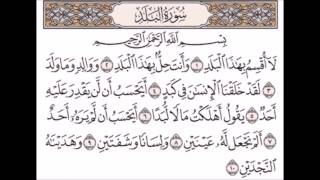 سُورَةُ الْبَلَدِ
بِسْمِ اللَّهِ الرَّحْمَٰنِ الرَّحِيمِ
لَا أُقْسِمُ بِهَٰذَا الْبَلَدِ ١ وَأَنتَ حِلٌّ بِهَٰذَا الْبَلَدِ ٢ وَوَالِدٍ وَمَا وَلَدَ
٣ لَقَدْ خَلَقْنَا الْإِنسَانَ فِي كَبَدٍ ٤ أَيَحْسَبُ أَن لَّن يَقْدِرَ عَلَيْهِ
أَحَدٌ ٥ يَقُولُ أَهْلَكْتُ مَالًا لُّبَدًا ٦ أَيَحْسَبُ أَن لَّمْ يَرَهُ أَحَدٌ
٧ أَلَمْ نَجْعَل لَّهُ عَيْنَيْنِ ٨ وَلِسَانًا وَشَفَتَيْنِ ٩ وَهَدَيْنَاهُ
النَّجْدَيْنِ ١٠